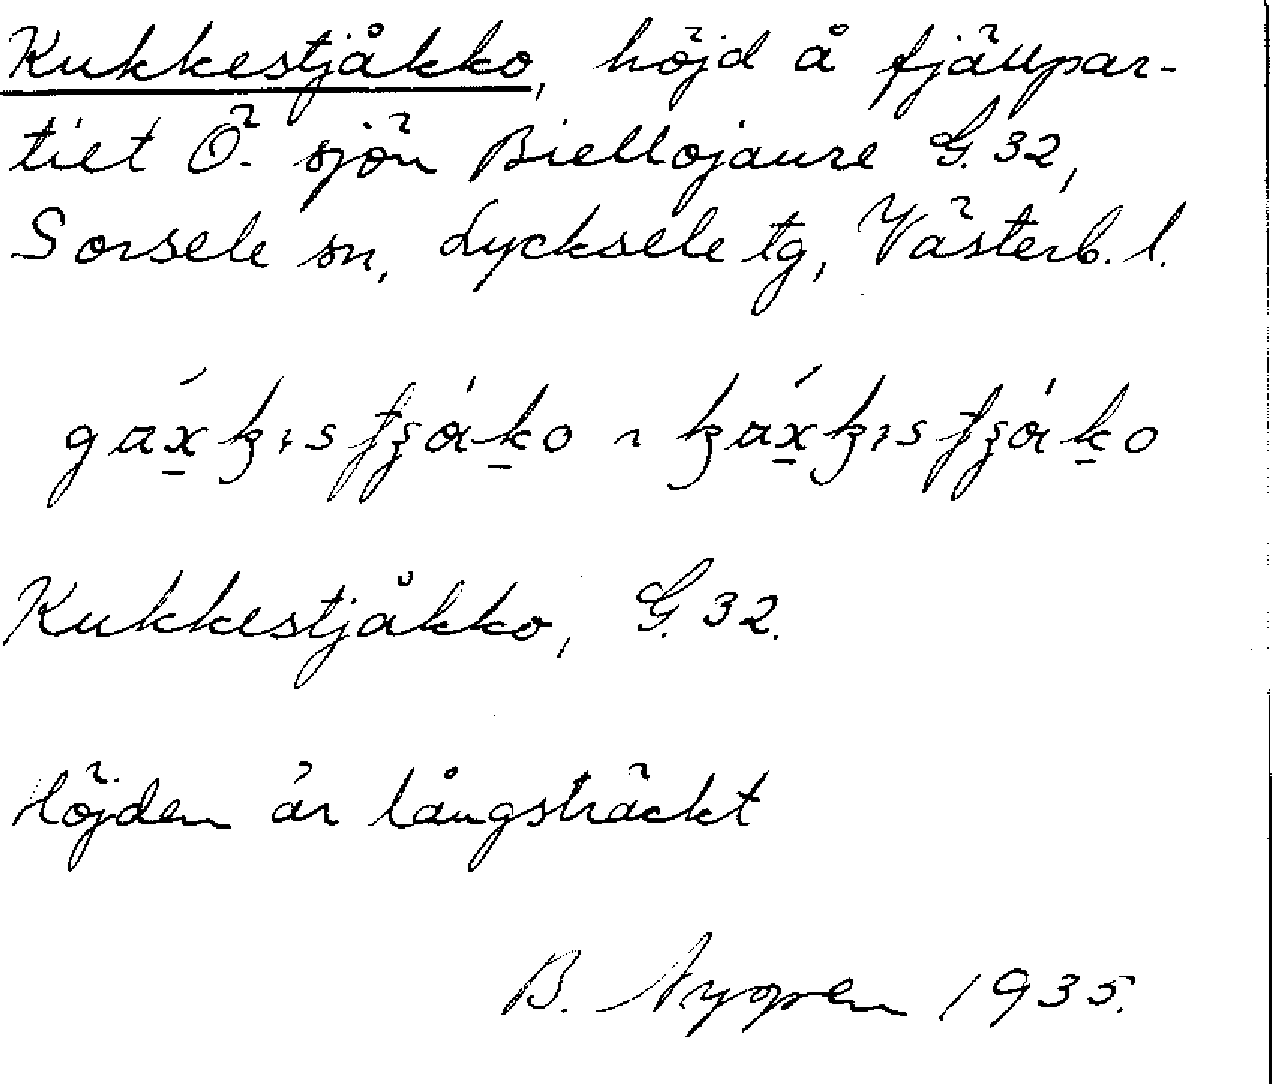 Kukkestjåkko, höjd å fjällpar-
tiet Ö. sjön Biellojaure G. 32,
Sorsele sn, Lycksele tg, Västerb. l.
Kukkestjåkko, G. 32.
Höjden är långsträckt
B. Nygren 1935.